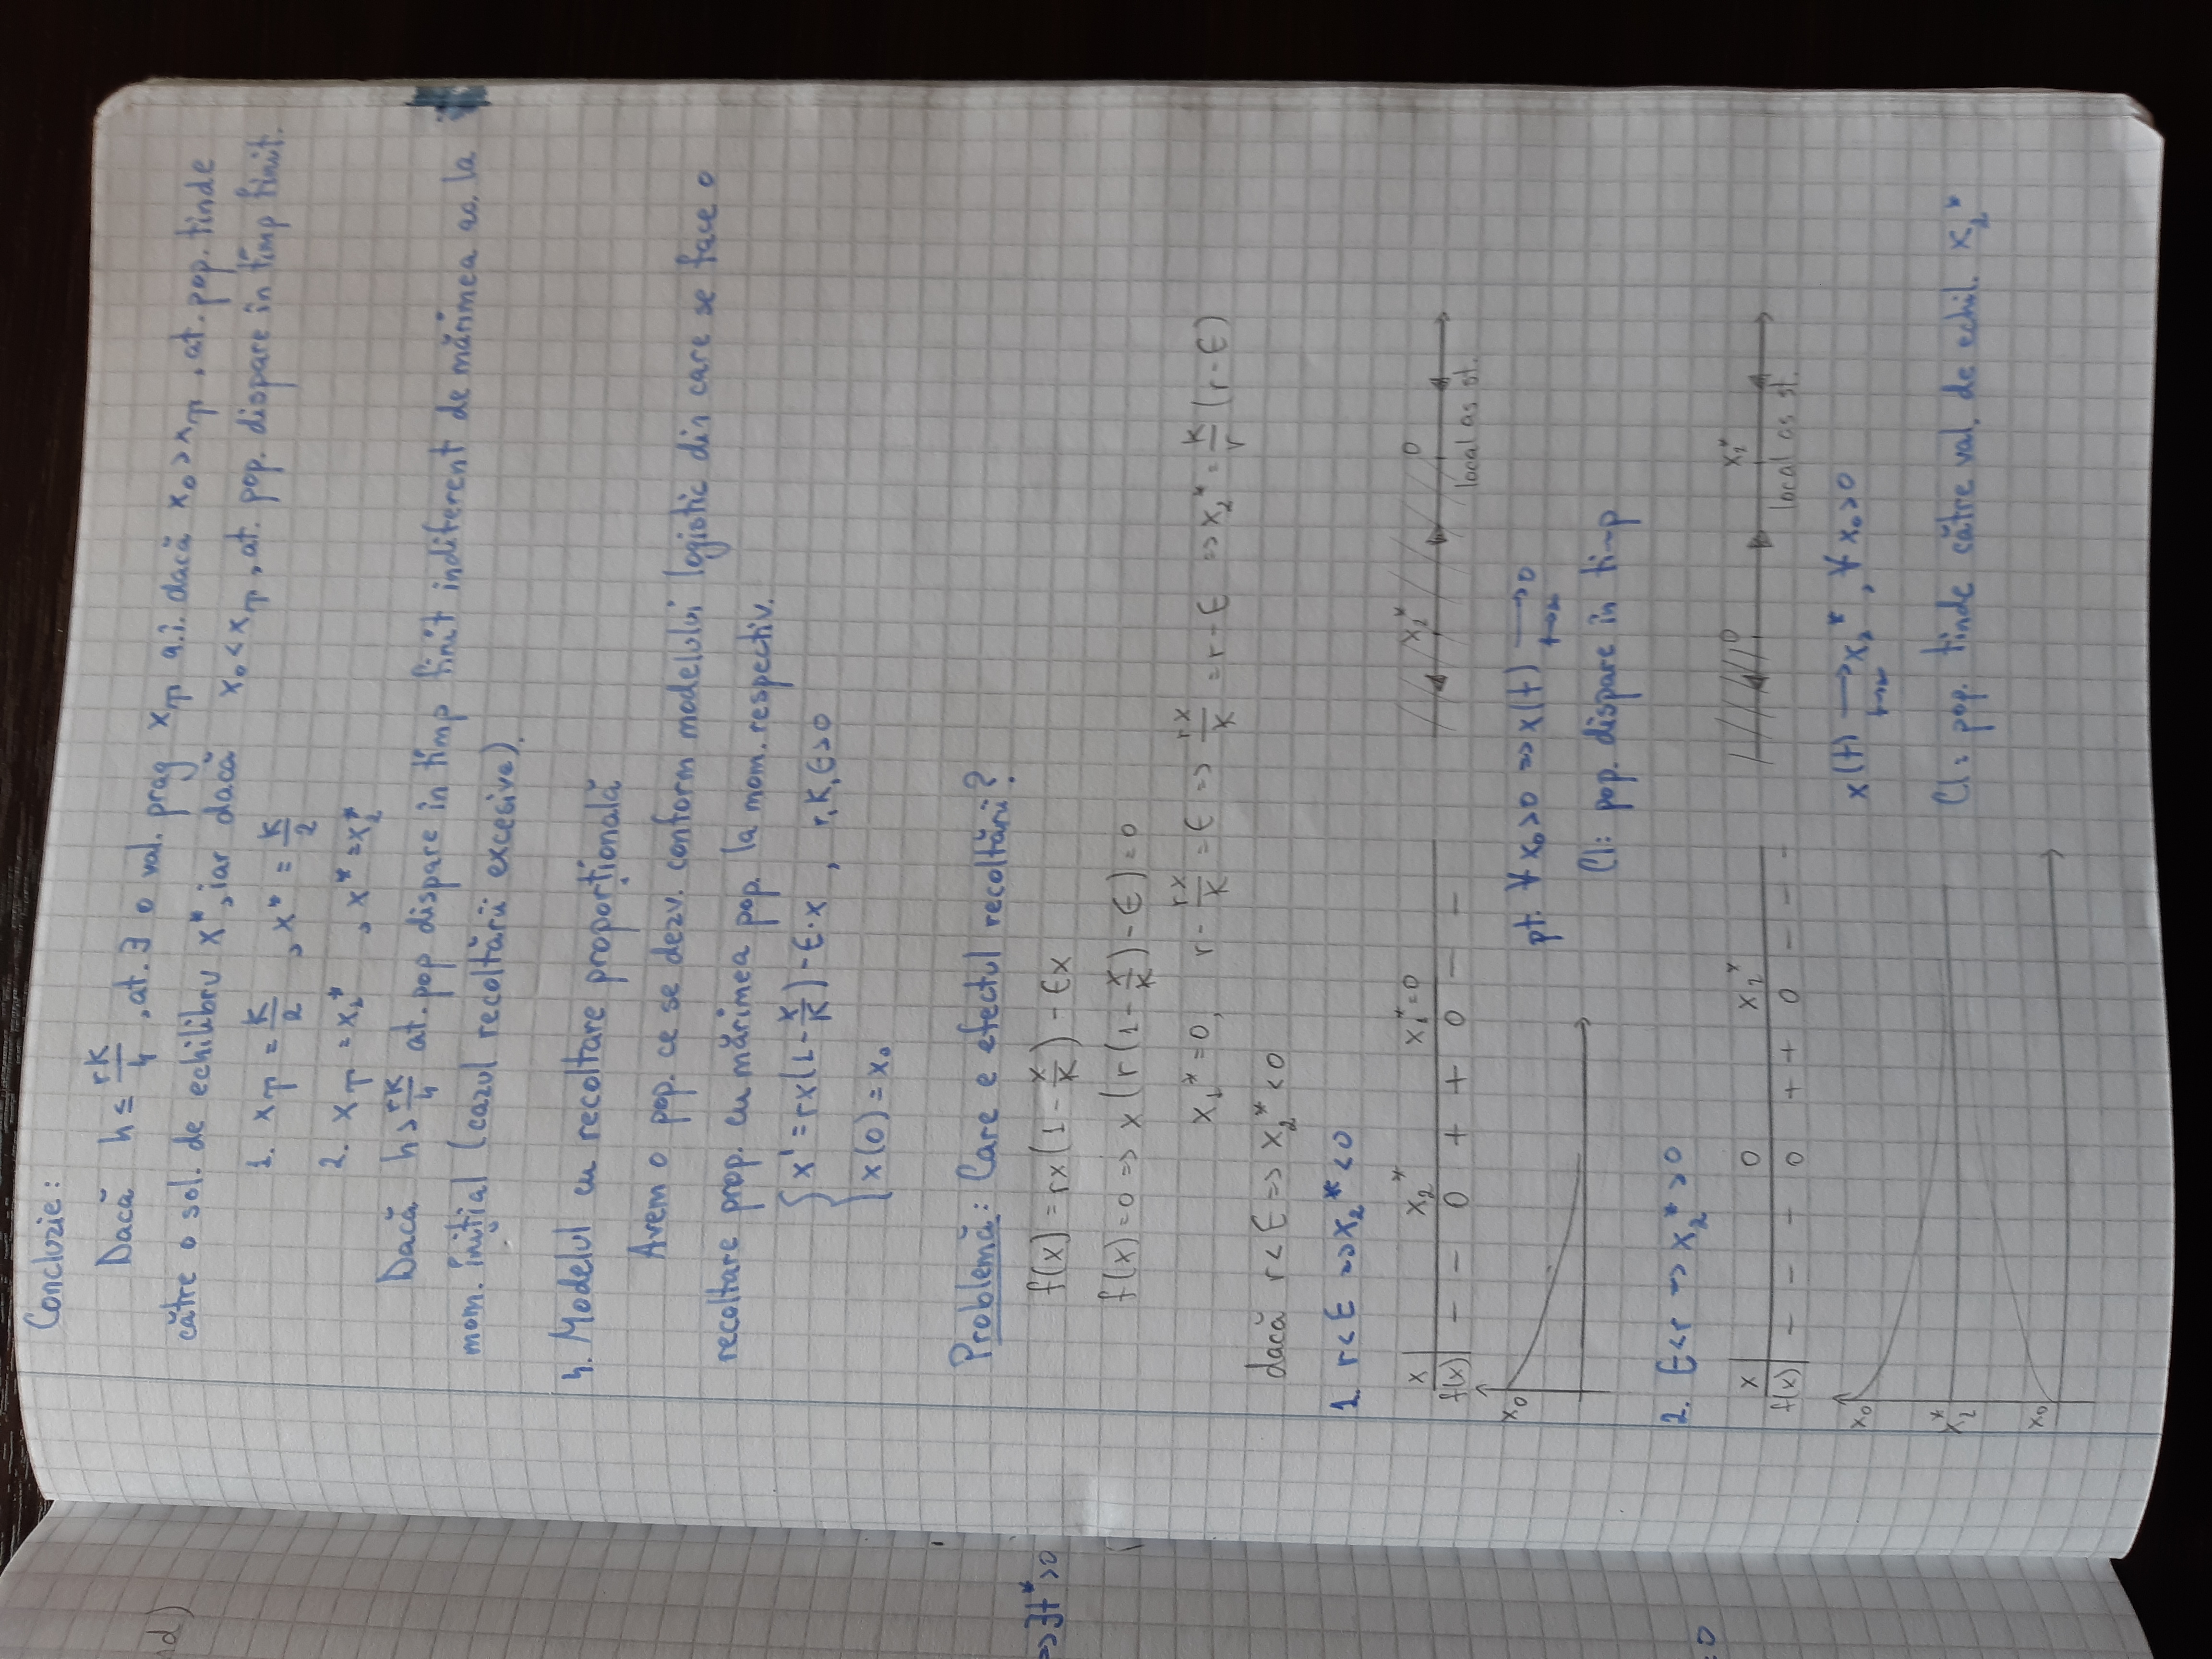 Concluzie:
Dacă h ≤ rK/4, at. ∃ o val. prag x_T a.î. dacă x₀ > x_T, at. pop. tinde
către o sol. de echilibru x*, iar dacă x₀ < x_T, at. pop. dispare în timp finit.
1. x_T = K/2 , x* = K/2
2. x_T = x₁* , x* = x₂*
Dacă h > rK/4 at. pop dispare în timp finit indiferent de mărimea ac. la
mom. inițial (cazul recoltării excesive).
4. Modelul cu recoltare proporțională
Avem o pop. ce se dezv. conform modelului logistic din care se face o
recoltare prop. cu mărimea pop. la mom. respectiv.
{ x' = rx(1 - x/K) - E·x , r, K, E > 0
x(0) = x₀
Problemă: Care e efectul recoltării?
f(x) = rx(1 - x/K) - Ex
f(x) = 0 => x(r(1 - x/K) - E) = 0
x₁* = 0, r - rx/K = E => rx/K = r - E => x₂* = K/r (r - E)
dacă r < E => x₂* < 0
1. r < E => x₂* < 0
x | x₂* x₁* = 0
f(x) | - - 0 + + 0 - -
x₂* 0
local as st.
x₀
pt. ∀ x₀ > 0 => x(t) → 0
t→∞
Cl: pop. dispare în timp
2. E < r => x₂* > 0
x | 0 x₂*
f(x) | - - - 0 + + 0 - - -
0 x₂*
local as st.
x₀
x₂*
x₀
x(t) → x₂* , ∀ x₀ > 0
t→∞
Cl: pop. tinde către val. de echil. x₂*
nd)
=> ∃t* > 0
= 0